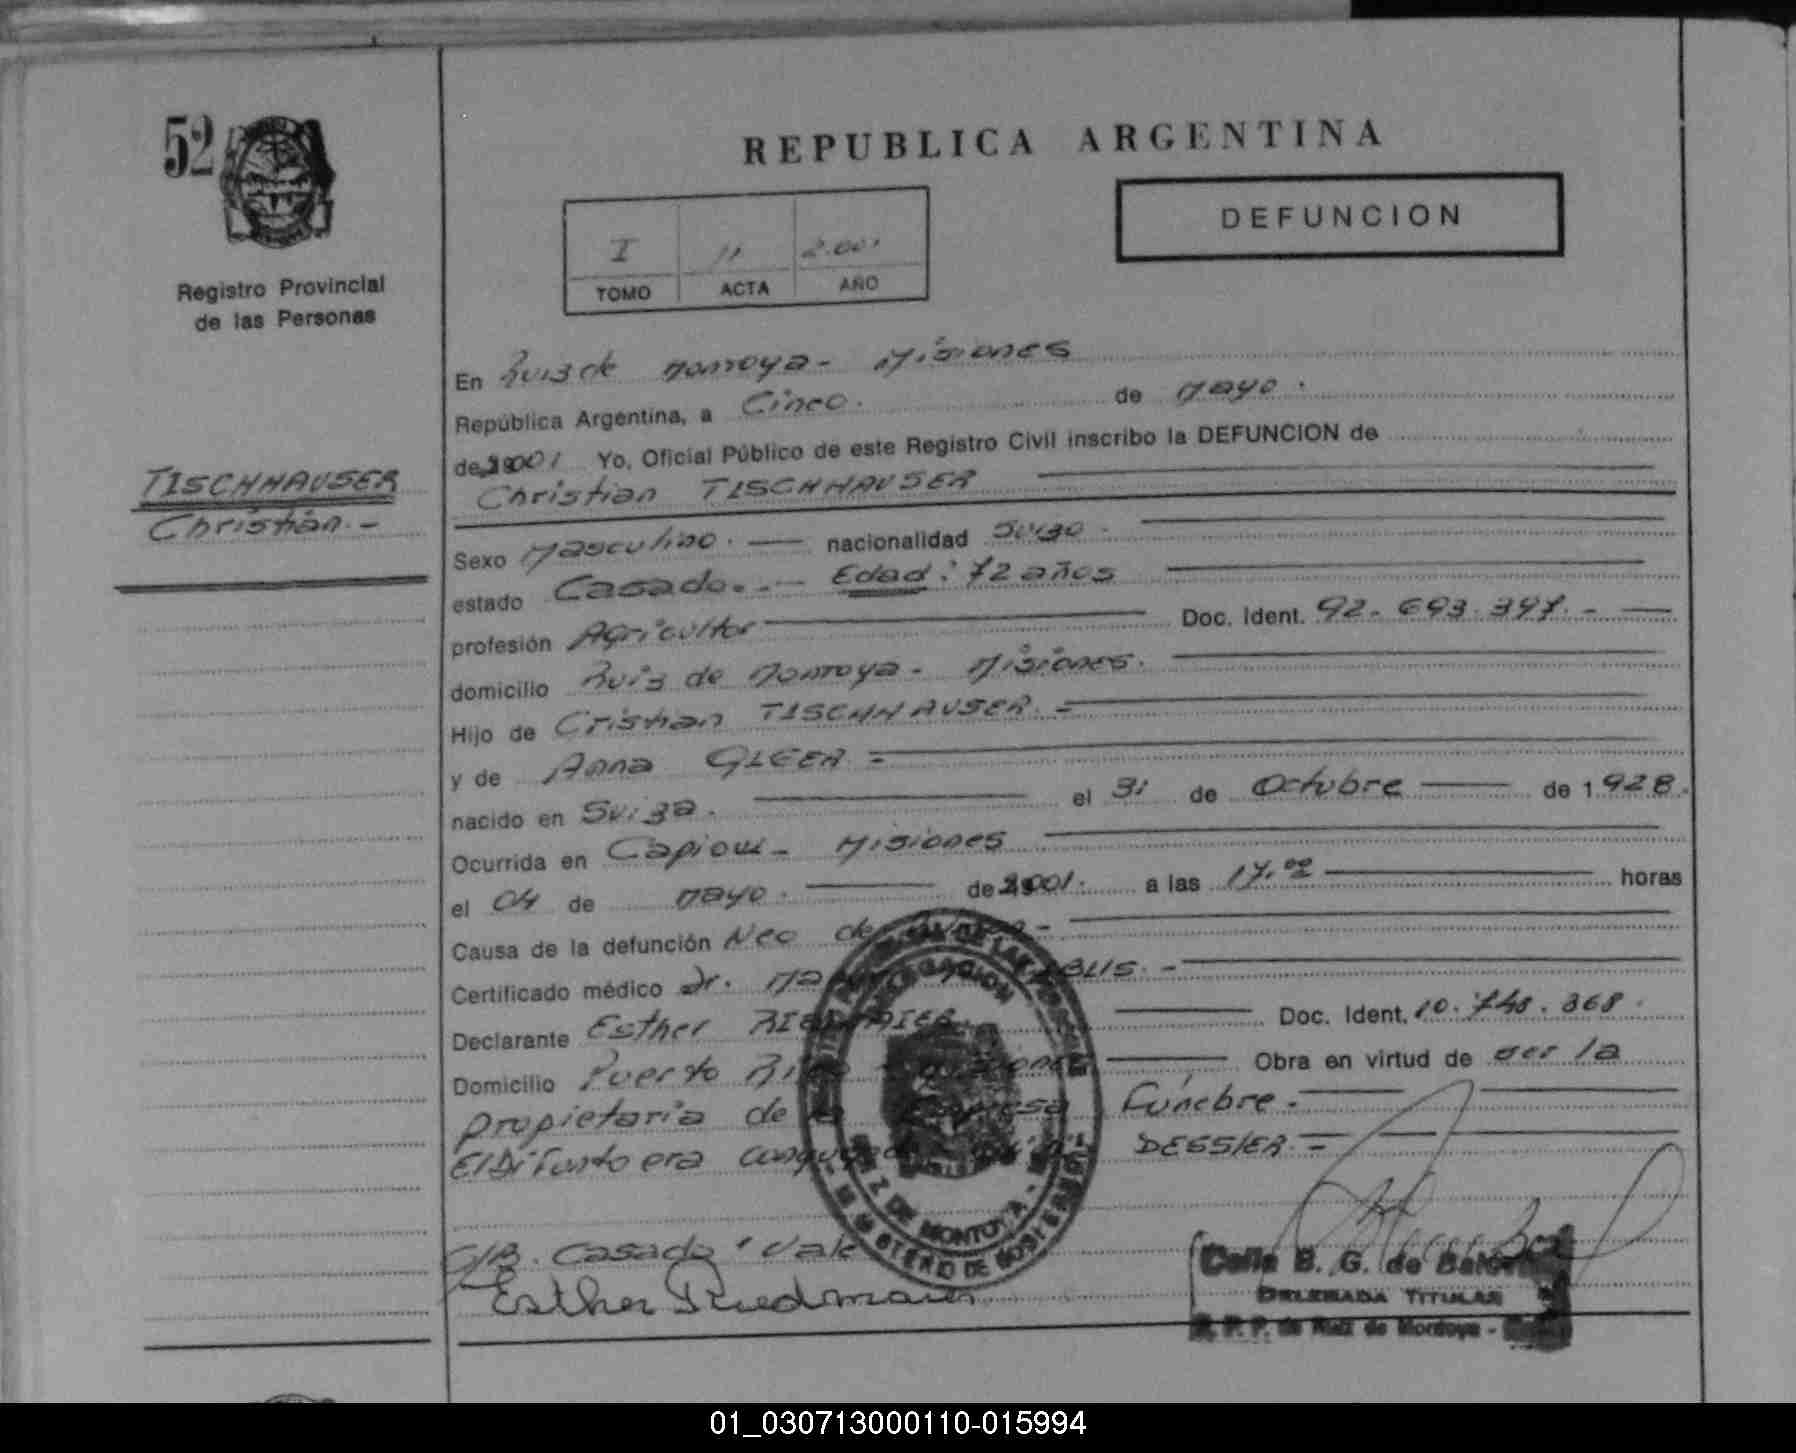 52
REPUBLICA ARGENTINA
DEFUNCION
I 11 2.001
TOMO ACTA AÑO
Registro Provincial
de las Personas
TISCHHAUSER
Christian.-
En Ruiz de Montoya - Misiones
República Argentina, a Cinco. de Mayo.
de 2001 Yo, Oficial Público de este Registro Civil inscribo la DEFUNCION de
Christian TISCHHAUSER
Sexo Masculino. nacionalidad Suizo.
estado Casado. - Edad: 72 años
profesión Agricultor Doc. Ident. 92.693.397.-
domicilio Ruiz de Montoya - Misiones.
Hijo de Cristian TISCHHAUSER. -
y de Anna
nacido en Suiza. el 31 de Octubre de 1928.
Ocurrida en Capiovi - Misiones
el 04 de Mayo. de 2001. a las 17.00 horas
Causa de la defunción Neo de
Certificado médico Dr.
Declarante Esther Doc. Ident. 10.748.368.
Domicilio Puerto Rico - Misiones Obra en virtud de ser la
propietaria de la Empresa Fúnebre.-
El Difunto era DESSLER.-
MINISTERIO DE GOBIERNO
RUIZ DE MONTOYA - M
C/B. Casado: Vale
Esther Riedmaier
Celia B. G. de
DELEGADA TITULAR
R. P. P. de Ruiz de Montoya -
01_030713000110-015994